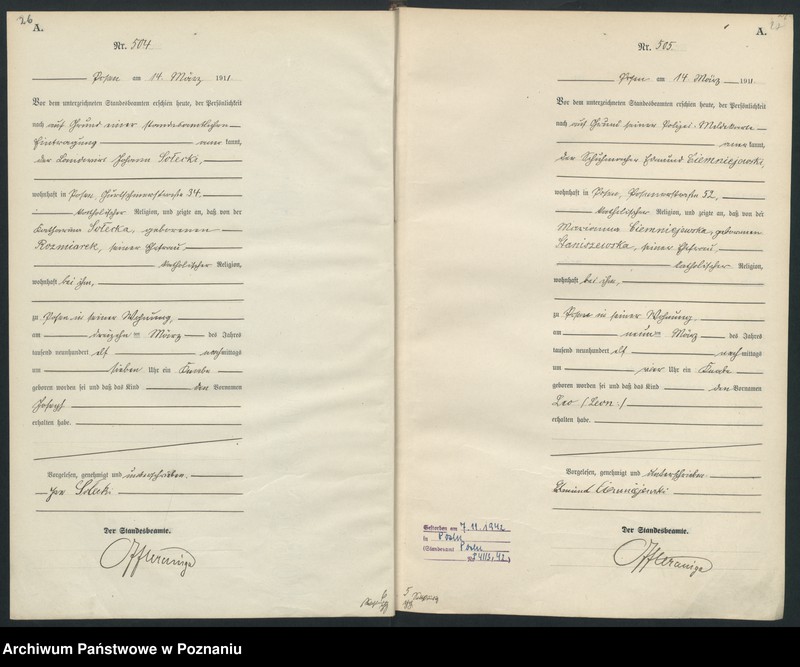 26
A.
Nr. 504
Posen am 14. März 1911
Vor dem unterzeichneten Standesbeamten erschien heute, der Persönlichkeit
nach auf Grund einer standesamtlichen
Eintragung anerkannt,
der Landwirt Johann Solecki,
wohnhaft in Posen, 34.
katholischer Religion, und zeigte an, daß von der
Katharina Solecka, geborenen
Rozmiarek, seiner Ehefrau,
katholischer Religion,
wohnhaft bei ihm,
zu Posen in seiner Wohnung,
am dreizehnten März des Jahres
tausend neunhundert elf nachmittags
um sieben Uhr ein Knabe
geboren worden sei und daß das Kind den Vornamen
Joseph
erhalten habe.
Vorgelesen, genehmigt und unterschrieben.
Solecki
Der Standesbeamte.
A.
Nr. 505
Posen am 14. März 1911.
Vor dem unterzeichneten Standesbeamten erschien heute, der Persönlichkeit
nach auf Grund seiner Polizei-Meldekarte
anerkannt,
der Schuhmacher Edmund Ciemniejewski,
wohnhaft in Posen, Posenerstraße 52,
katholischer Religion, und zeigte an, daß von der
Marianna Ciemniejewska, geborenen
Staniszewska, seiner Ehefrau,
katholischer Religion,
wohnhaft bei ihm,
zu Posen in seiner Wohnung,
am neunten März des Jahres
tausend neunhundert elf nachmittags
um vier Uhr ein Knabe
geboren worden sei und daß das Kind den Vornamen
Leo (Leon)
erhalten habe.
Vorgelesen, genehmigt und unterschrieben.
Edmund Ciemniejewski
Gestorben am 7.11.1942
in Posen
(Standesamt Posen
Der Standesbeamte.
Archiwum Państwowe w Poznaniu